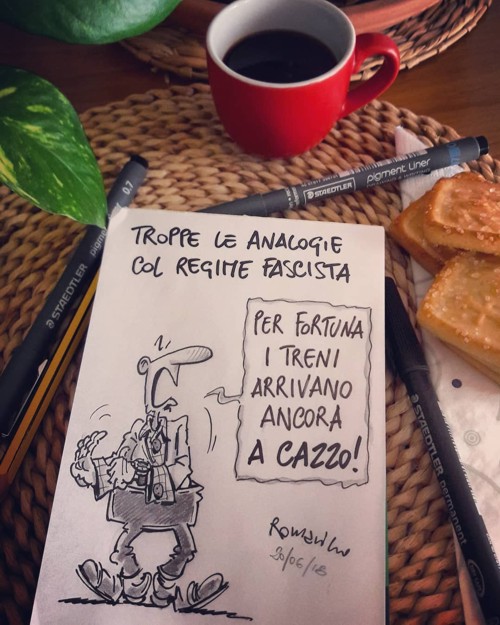 TROPPE LE ANALOGIE
COL REGIME FASCISTA
PER FORTUNA
I TRENI
ARRIVANO
ANCORA
A CAZZO!
20/06/18
STAEDTLER
pigment liner
STAEDTLER
0.7
STAEDTLER permanent